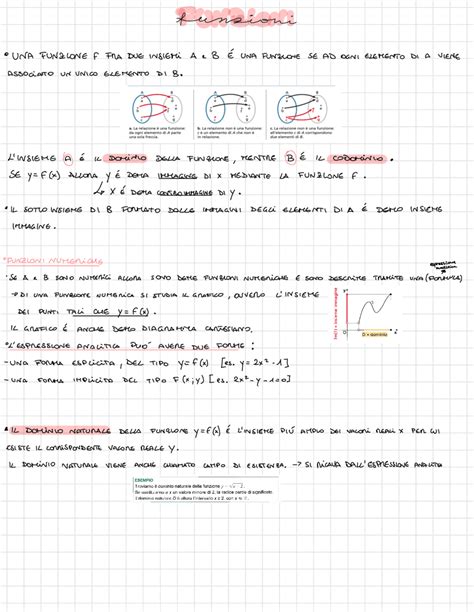 Funzioni
• UNA FUNZIONE F FRA DUE INSIEMI A e B É UNA FUNZIONE SE AD OGNI ELEMENTO DI A VIENE
ASSOCIATO UN UNICO ELEMENTO DI B.
a. La relazione è una funzione: da ogni elemento di A parte una sola freccia.
b. La relazione non è una funzione: c'è un elemento di A che non è in relazione.
c. La relazione non è una funzione: all'elemento di A corrispondono due elementi di B.
L'INSIEME A É IL DOMINIO DELLA FUNZIONE, MENTRE B É IL CODOMINIO.
SE y=f(x) ALLORA y É DETTA IMMAGINE DI x MEDIANTE LA FUNZIONE F.
↳ x É DETTA CONTROIMMAGINE DI y.
• IL SOTTOINSIEME DI B FORMATO DALLE IMMAGINI DEGLI ELEMENTI DI A É DETTO INSIEME
IMMAGINE.
• FUNZIONI NUMERICHE
• SE A e B SONO NUMERICI ALLORA SONO DETTE FUNZIONI NUMERICHE E SONO DESCRITTE TRAMITE UNA (FORMULA)
espressione analitica
→ DI UNA FUNZIONE NUMERICA SI STUDIA IL GRAFICO, OVVERO L'INSIEME
DEI PUNTI TALI CHE y=f(x).
IL GRAFICO É ANCHE DETTO DIAGRAMMA CARTESIANO.
D = dominio
• L'ESPRESSIONE ANALITICA PUÓ AVERE DUE FORME:
- UNA FORMA ESPLICITA, DEL TIPO y=f(x) [es. y=2x²-1]
- UNA FORMA IMPLICITA DEL TIPO F(x;y) [es. 2x²-y-1=0]
• IL DOMINIO NATURALE DELLA FUNZIONE y=f(x) É L'INSIEME PIÚ AMPIO DEI VALORI REALI x PER CUI
ESISTE IL CORRISPONDENTE VALORE REALE y.
IL DOMINIO NATURALE VIENE ANCHE CHIAMATO CAMPO DI ESISTENZA. → SI RICAVA DALL'ESPRESSIONE ANALITICA
ESEMPIO
Troviamo il dominio naturale della funzione y = √x-2.
Se sostituiamo a x un valore minore di 2, la radice perde di significato.
Il dominio naturale D è allora l'intervallo x ≥ 2